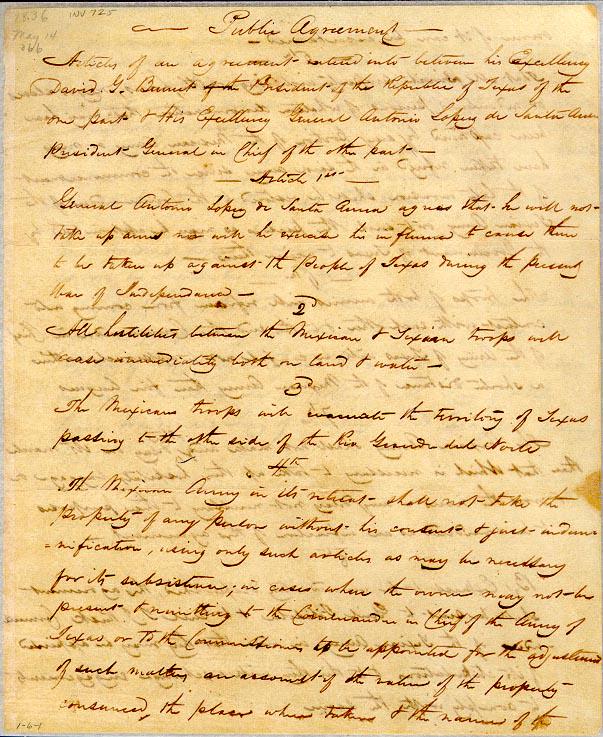 1836
May 14
266
INV 725
Public Agreement
Articles of an agreement entered into between his Excellency
David G. Burnet of the President of the Republic of Texas of the
one part & His Excellency General Antonio Lopez de Santa Anna
President General in Chief of the other part—
Article 1st
General Antonio Lopez de Santa Anna agrees that he will not
take up arms nor will he exercise his influence to cause them
to be taken up against the People of Texas during the present
War of Independence—
2d
All hostilities between the Mexican & Texian troops will
cease immediately both on land & water—
3d
The Mexican troops will evacuate the territory of Texas
passing to the other side of the Rio Grande del Norte
4th
The Mexican Army in its retreat shall not take the
property of any person without his consent & just indem
=nification, using only such articles as may be necessary
for its subsistence, in cases where the owner may not be
present & remitting to the Commander in Chief of the Army of
Texas or to the Commissioner to be appointed for the adjustment
of such matters an account of the value of the property
consumed, the place where taken & the name of the
1-6-1